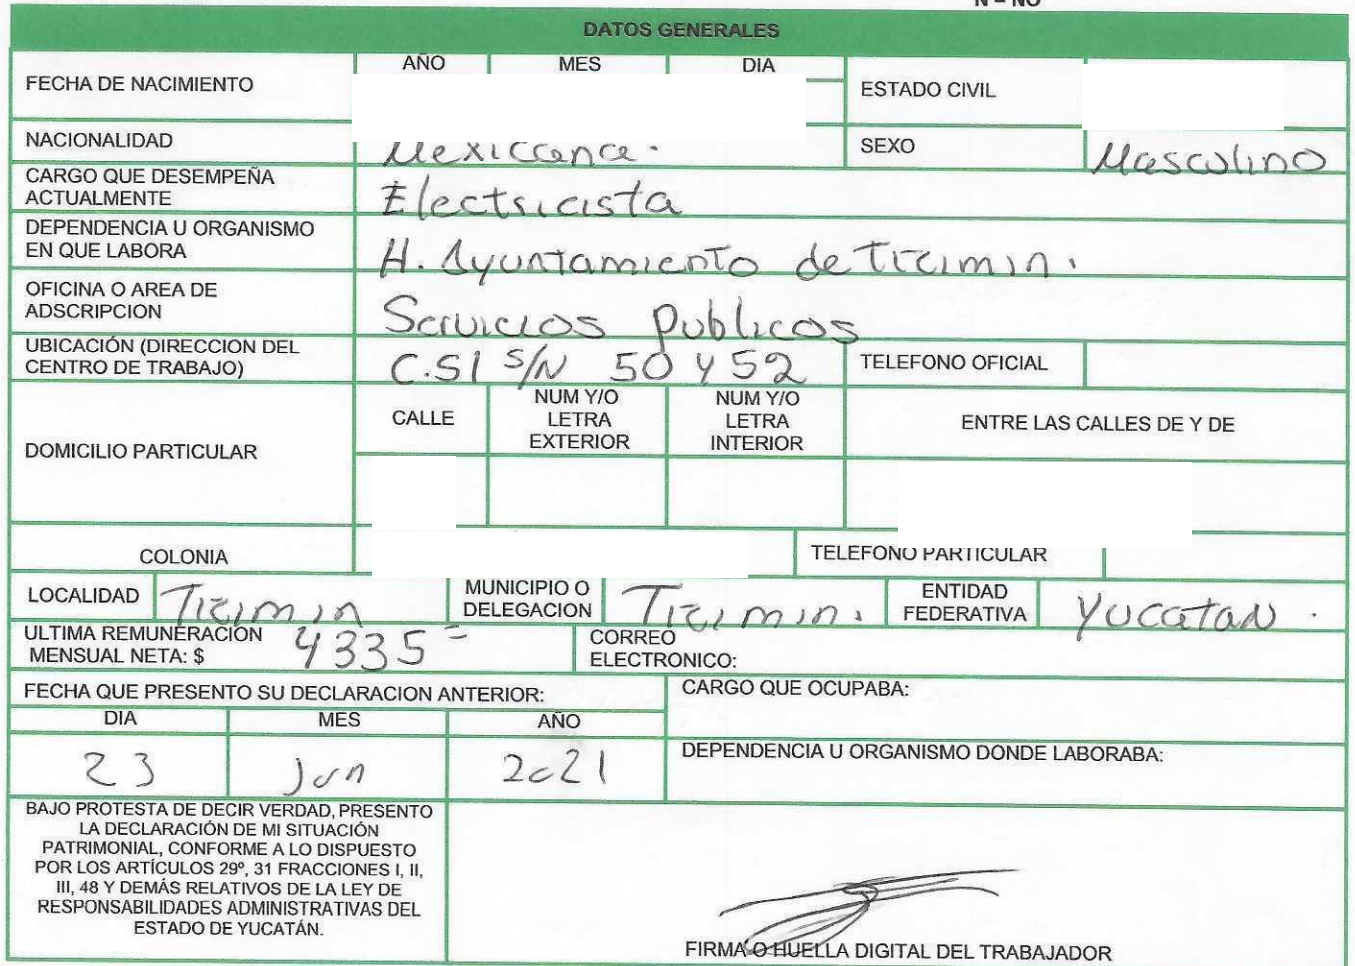 N = NO
DATOS GENERALES
FECHA DE NACIMIENTO
AÑO MES DIA
ESTADO CIVIL
NACIONALIDAD Mexiccana. SEXO Masculino
CARGO QUE DESEMPEÑA
ACTUALMENTE
Electricista
DEPENDENCIA U ORGANISMO
EN QUE LABORA
H. Ayuntamiento de Tizimin.
OFICINA O AREA DE
ADSCRIPCION
Servicios Publicos
UBICACIÓN (DIRECCION DEL
CENTRO DE TRABAJO)
C.51 S/N 50 y 52
TELEFONO OFICIAL
DOMICILIO PARTICULAR
CALLE
NUM Y/O
LETRA
EXTERIOR
NUM Y/O
LETRA
INTERIOR
ENTRE LAS CALLES DE Y DE
COLONIA TELEFONO PARTICULAR
LOCALIDAD Tizimin
MUNICIPIO O
DELEGACION
Tizimin.
ENTIDAD
FEDERATIVA
Yucatan.
ULTIMA REMUNERACIÓN
MENSUAL NETA: $
4335=
CORREO
ELECTRONICO:
FECHA QUE PRESENTO SU DECLARACION ANTERIOR:
DIA MES AÑO
23 Jun 2021
CARGO QUE OCUPABA:
DEPENDENCIA U ORGANISMO DONDE LABORABA:
BAJO PROTESTA DE DECIR VERDAD, PRESENTO
LA DECLARACIÓN DE MI SITUACIÓN
PATRIMONIAL, CONFORME A LO DISPUESTO
POR LOS ARTÍCULOS 29º, 31 FRACCIONES I, II,
III, 48 Y DEMÁS RELATIVOS DE LA LEY DE
RESPONSABILIDADES ADMINISTRATIVAS DEL
ESTADO DE YUCATÁN.
FIRMA O HUELLA DIGITAL DEL TRABAJADOR